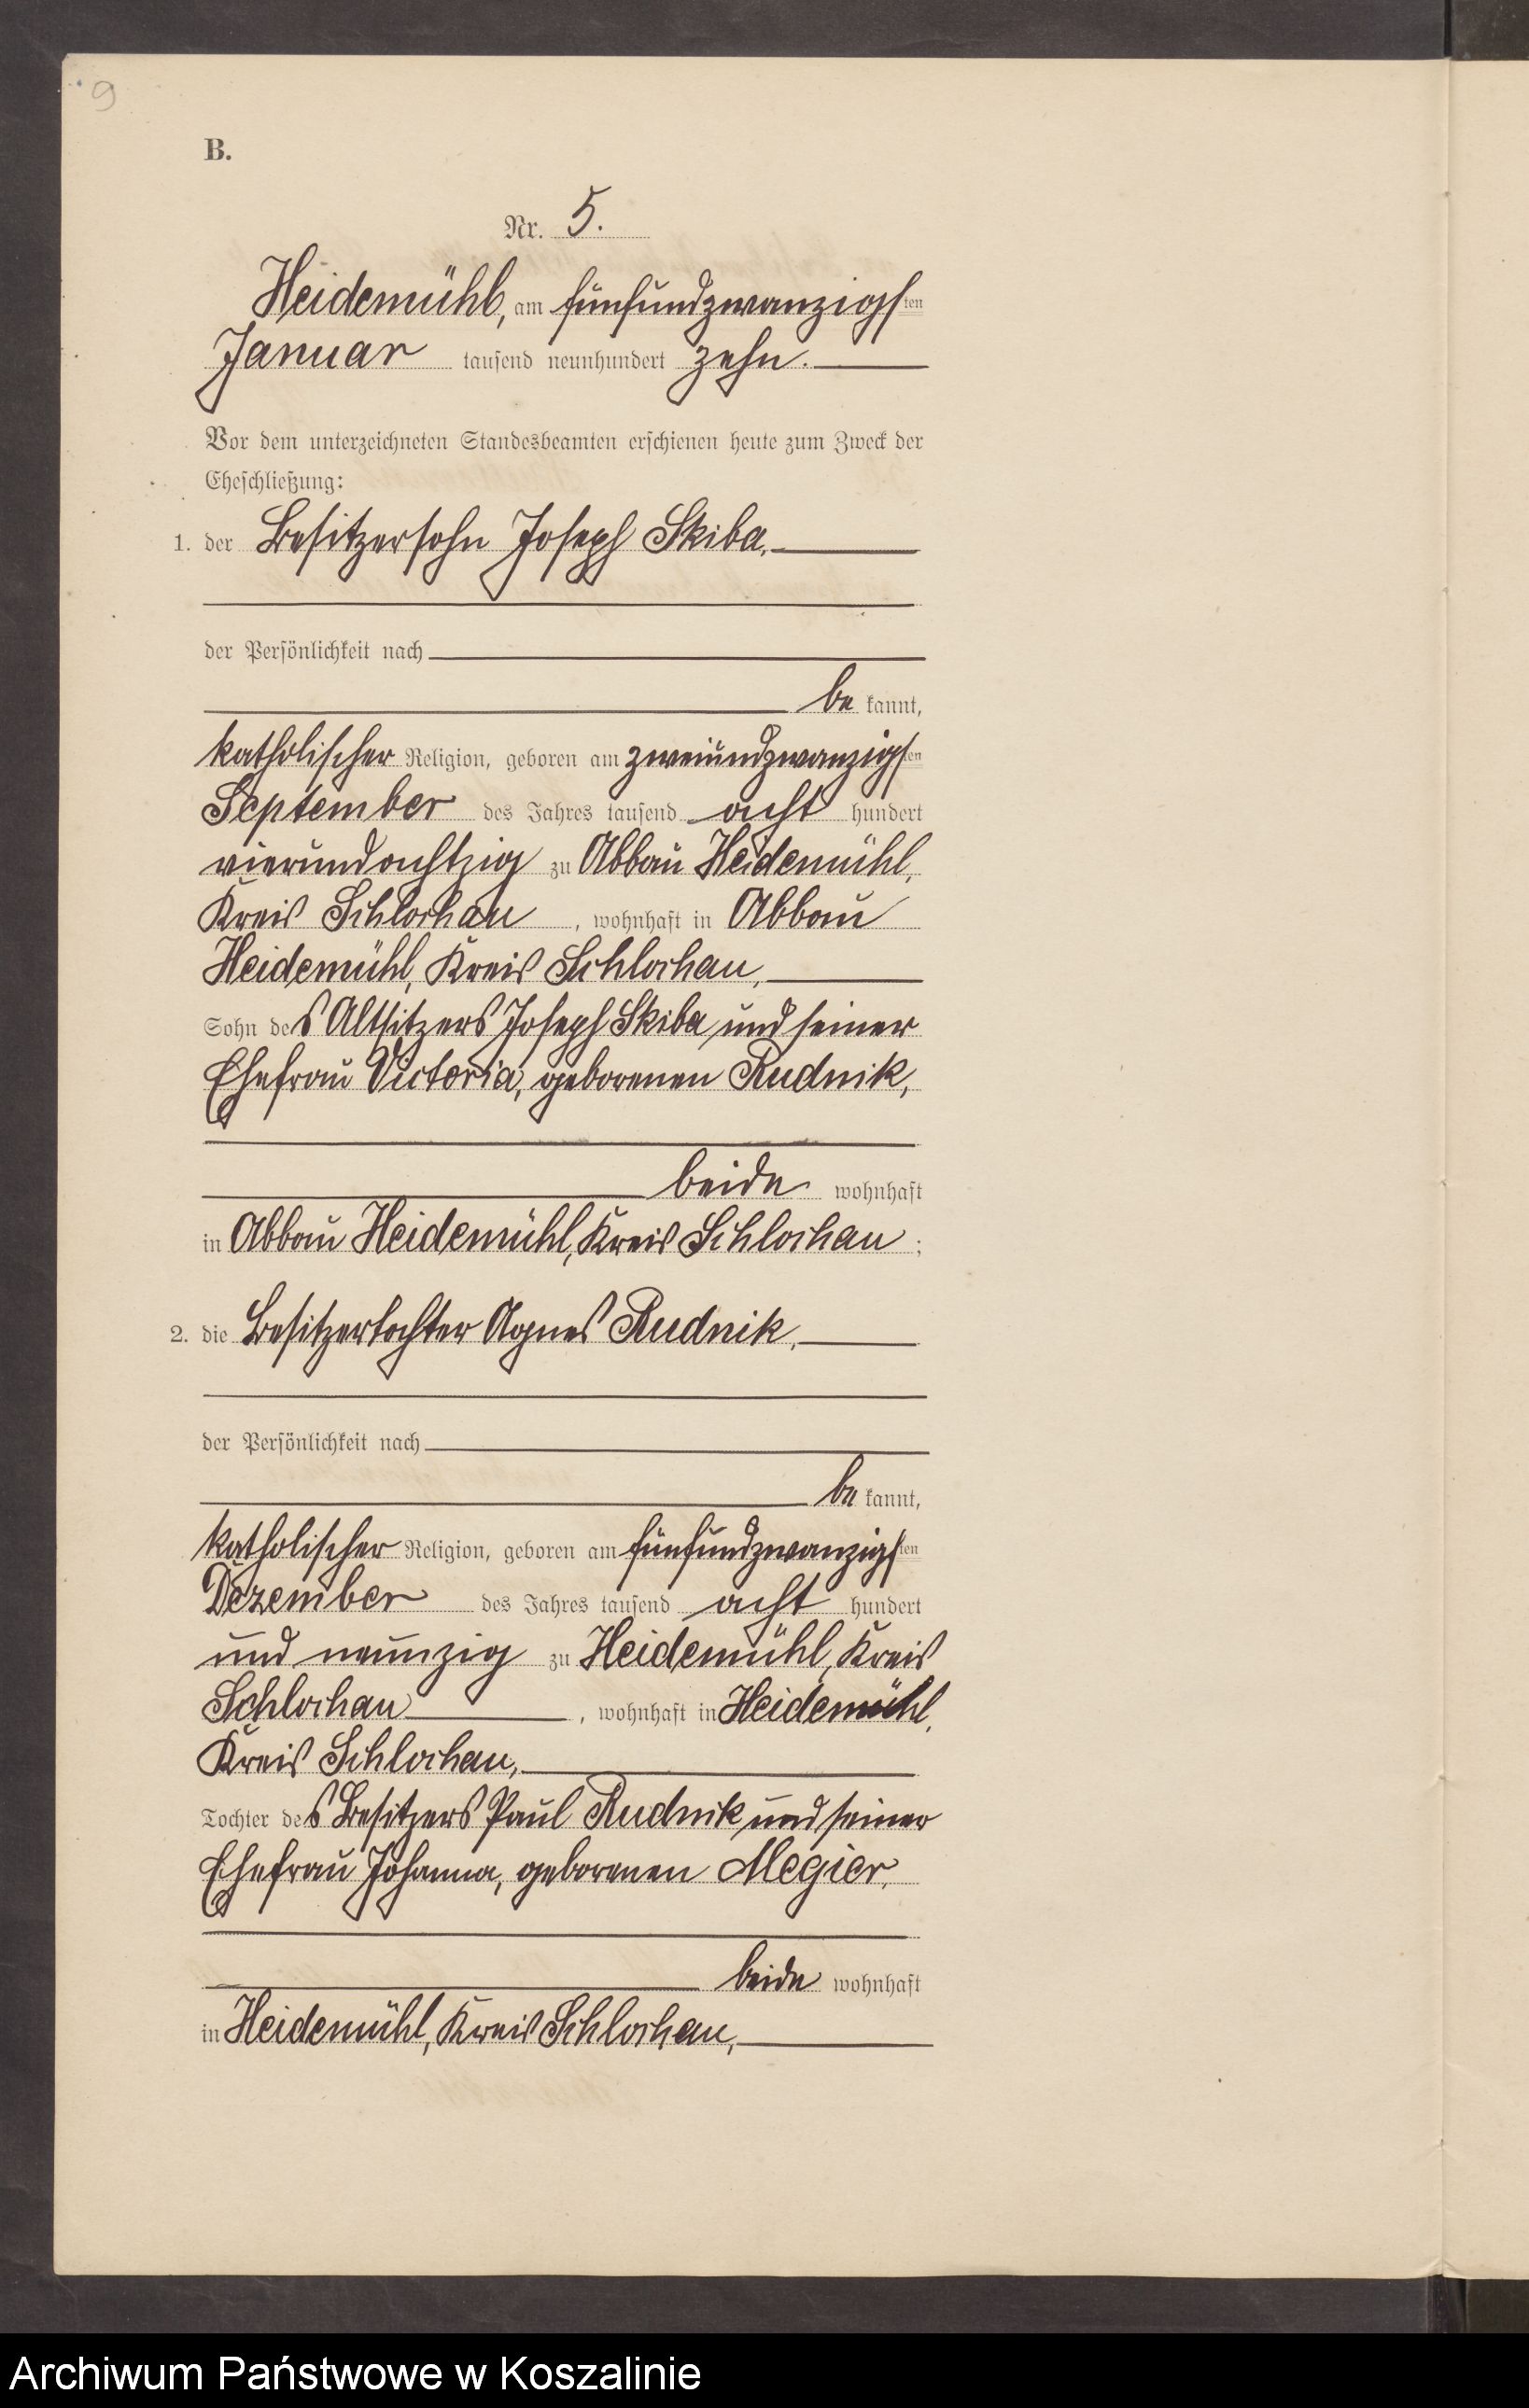 9
B.
Nr. 5.
Heidemühl, am fünfundzwanzigsten
Januar tausend neunhundert zehn.
Vor dem unterzeichneten Standesbeamten erschienen heute zum Zweck der
Eheschließung:
1. der Besitzersohn Joseph Skiba,
der Persönlichkeit nach
be kannt,
katholischer Religion, geboren am zweiundzwanzigsten
September des Jahres tausend acht hundert
vierundachtzig zu Abbau Heidemühl,
Kreis Schlochau, wohnhaft in Abbau
Heidemühl, Kreis Schlochau,
Sohn des Altsitzers Joseph Skiba und seiner
Ehefrau Victoria, geborenen Rudnik,
beide wohnhaft
in Abbau Heidemühl, Kreis Schlochau;
2. die Besitzertochter Agnes Rudnik,
der Persönlichkeit nach
be kannt,
katholischer Religion, geboren am fünfundzwanzigsten
Dezember des Jahres tausend acht hundert
und neunzig zu Heidemühl, Kreis
Schlochau, wohnhaft in Heidemühl,
Kreis Schlochau,
Tochter des Besitzers Paul Rudnik und seiner
Ehefrau Johanna, geborenen Megier,
beide wohnhaft
in Heidemühl, Kreis Schlochau,
Archiwum Państwowe w Koszalinie